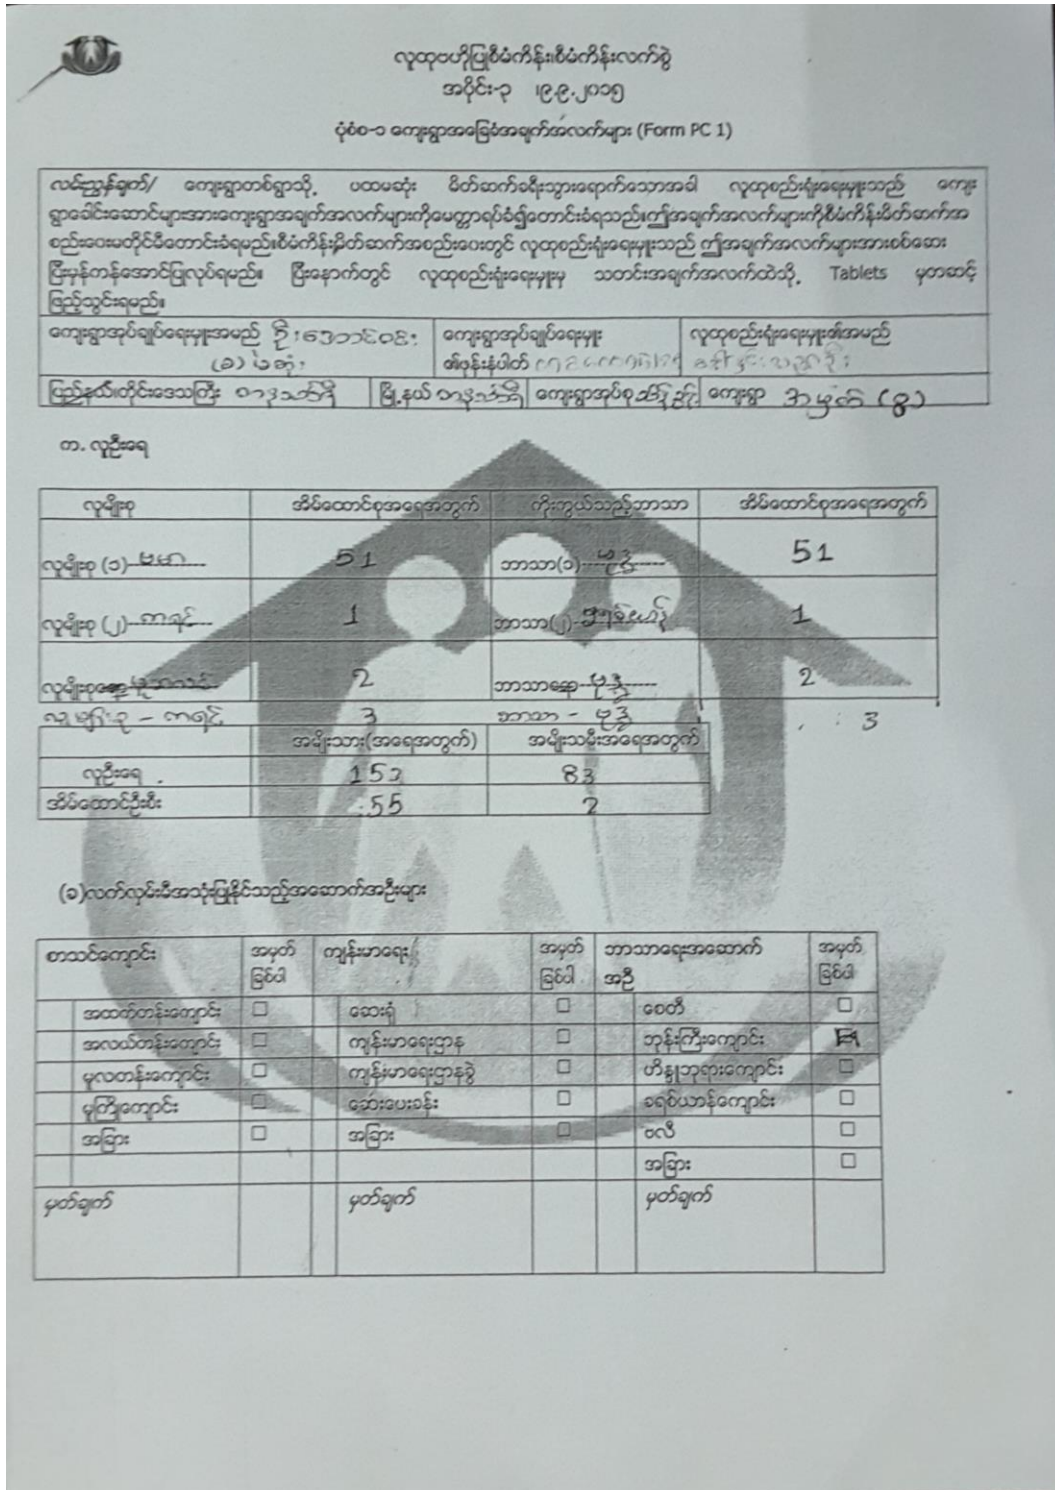 လူထုဗဟိုပြုစီမံကိန်း၊စီမံကိန်းလက်စွဲ
အပိုင်း-၃ ၊၉.၉.၂၀၁၅
ပုံစံစ-၁ ကျေးရွာအခြေခံအချက်အလက်များ (Form PC 1)
လမ်းညွှန်ချက်/ ကျေးရွာတစ်ရွာသို့ ပထမဆုံး မိတ်ဆက်ခရီးသွားရောက်သောအခါ လူထုစည်းရုံးရေးမှူးသည် ကျေး
ရွာခေါင်းဆောင်များအားကျေးရွာအချက်အလက်များကိုမေတ္တာရပ်ခံ၍တောင်းခံရသည်။ဤအချက်အလက်များကိုစီမံကိန်းမိတ်ဆက်အ
စည်းဝေးမတိုင်မီတောင်းခံရမည်။စီမံကိန်းမိတ်ဆက်အစည်းဝေးတွင် လူထုစည်းရုံးရေးမှူးသည် ဤအချက်အလက်များအားစစ်ဆေး
ပြီးမှန်ကန်အောင်ပြုလုပ်ရမည်။ ပြီးနောက်တွင် လူထုစည်းရုံးရေးမှူးမှ သတင်းအချက်အလက်ထဲသို့ Tablets မှတဆင့်
ဖြည့်သွင်းရမည်။
ကျေးရွာအုပ်ချုပ်ရေးမှူးအမည် ဦး ကျေးရွာအုပ်ချုပ်ရေးမှူး လူထုစည်းရုံးရေးမှူး၏အမည်
၏ဖုန်းနံပါတ်
ပြည်နယ်/တိုင်းဒေသကြီး တနင်္သာရီ မြို့နယ် တနင်္သာရီ ကျေးရွာအုပ်စု ကျေးရွာ
က. လူဦးရေ
လူမျိုးစု အိမ်ထောင်စုအရေအတွက် ကိုးကွယ်သည့်ဘာသာ အိမ်ထောင်စုအရေအတွက်
လူမျိုးစု (၁) ဗမာ 51 ဘာသာ(၁) ဗုဒ္ဓ 51
လူမျိုးစု (၂) ကရင် 1 ဘာသာ(၂) ခရစ်ယာန် 1
လူမျိုးစု 2 ဘာသာ ဗုဒ္ဓ 2
လူမျိုးစု - ကရင် 3 ဘာသာ - ဗုဒ္ဓ 3
အမျိုးသား(အရေအတွက်) အမျိုးသမီးအရေအတွက်
လူဦးရေ 153 83
အိမ်ထောင်ဦးစီး 55 2
(ခ)လက်လှမ်းမီအသုံးပြုနိုင်သည့်အဆောက်အဦးများ
စာသင်ကျောင်း အမှတ် ကျန်းမာရေး အမှတ် ဘာသာရေးအဆောက် အမှတ်
ခြစ်ပါ ခြစ်ပါ အဦ ခြစ်ပါ
အထက်တန်းကျောင်း □ ဆေးရုံ □ စေတီ □
အလယ်တန်းကျောင်း □ ကျန်းမာရေးဌာန □ ဘုန်းကြီးကျောင်း
မူလတန်းကျောင်း □ ကျန်းမာရေးဌာနခွဲ □ ဟိန္ဒူဘုရားကျောင်း □
မူကြိုကျောင်း □ ဆေးပေးခန်း □ ခရစ်ယာန်ကျောင်း □
အခြား □ အခြား □ ဗလီ □
အခြား □
မှတ်ချက် မှတ်ချက် မှတ်ချက်